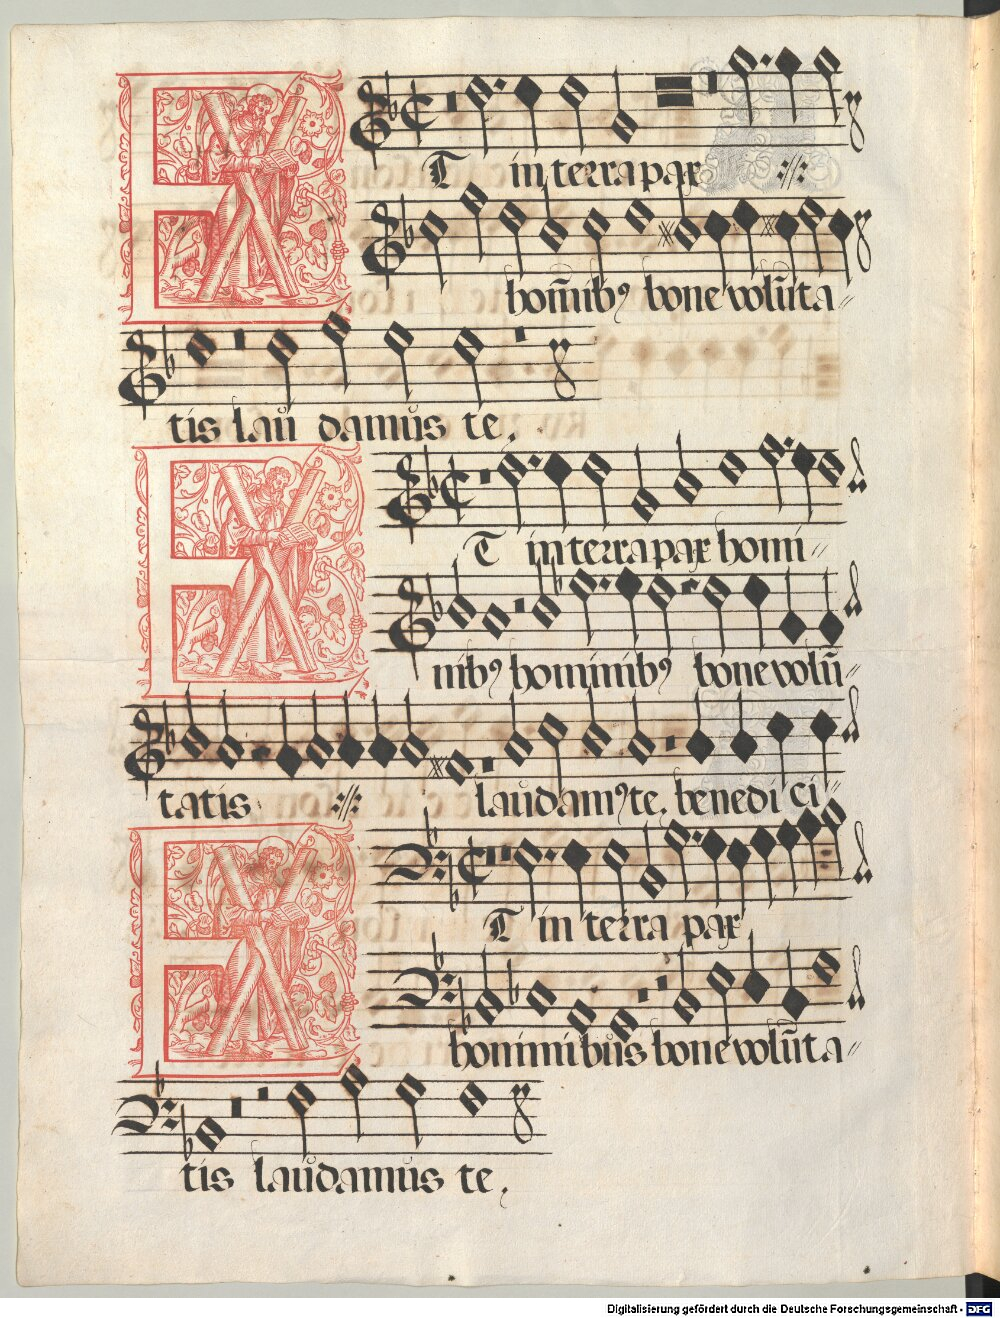 ET in terra pax :||:
hom̄ibꝰ bone volūta〃
tis laŭ damŭs te.
ET in terra pax homi〃
nibꝰ hominibꝰ bone volū〃
tatis :||: laŭdamꝰ te. benedi ci〃
ET in terra pax
hominibŭs bone volūta〃
tis laŭdamŭs te.
Digitalisierung gefördert durch die Deutsche Forschungsgemeinschaft - DFG